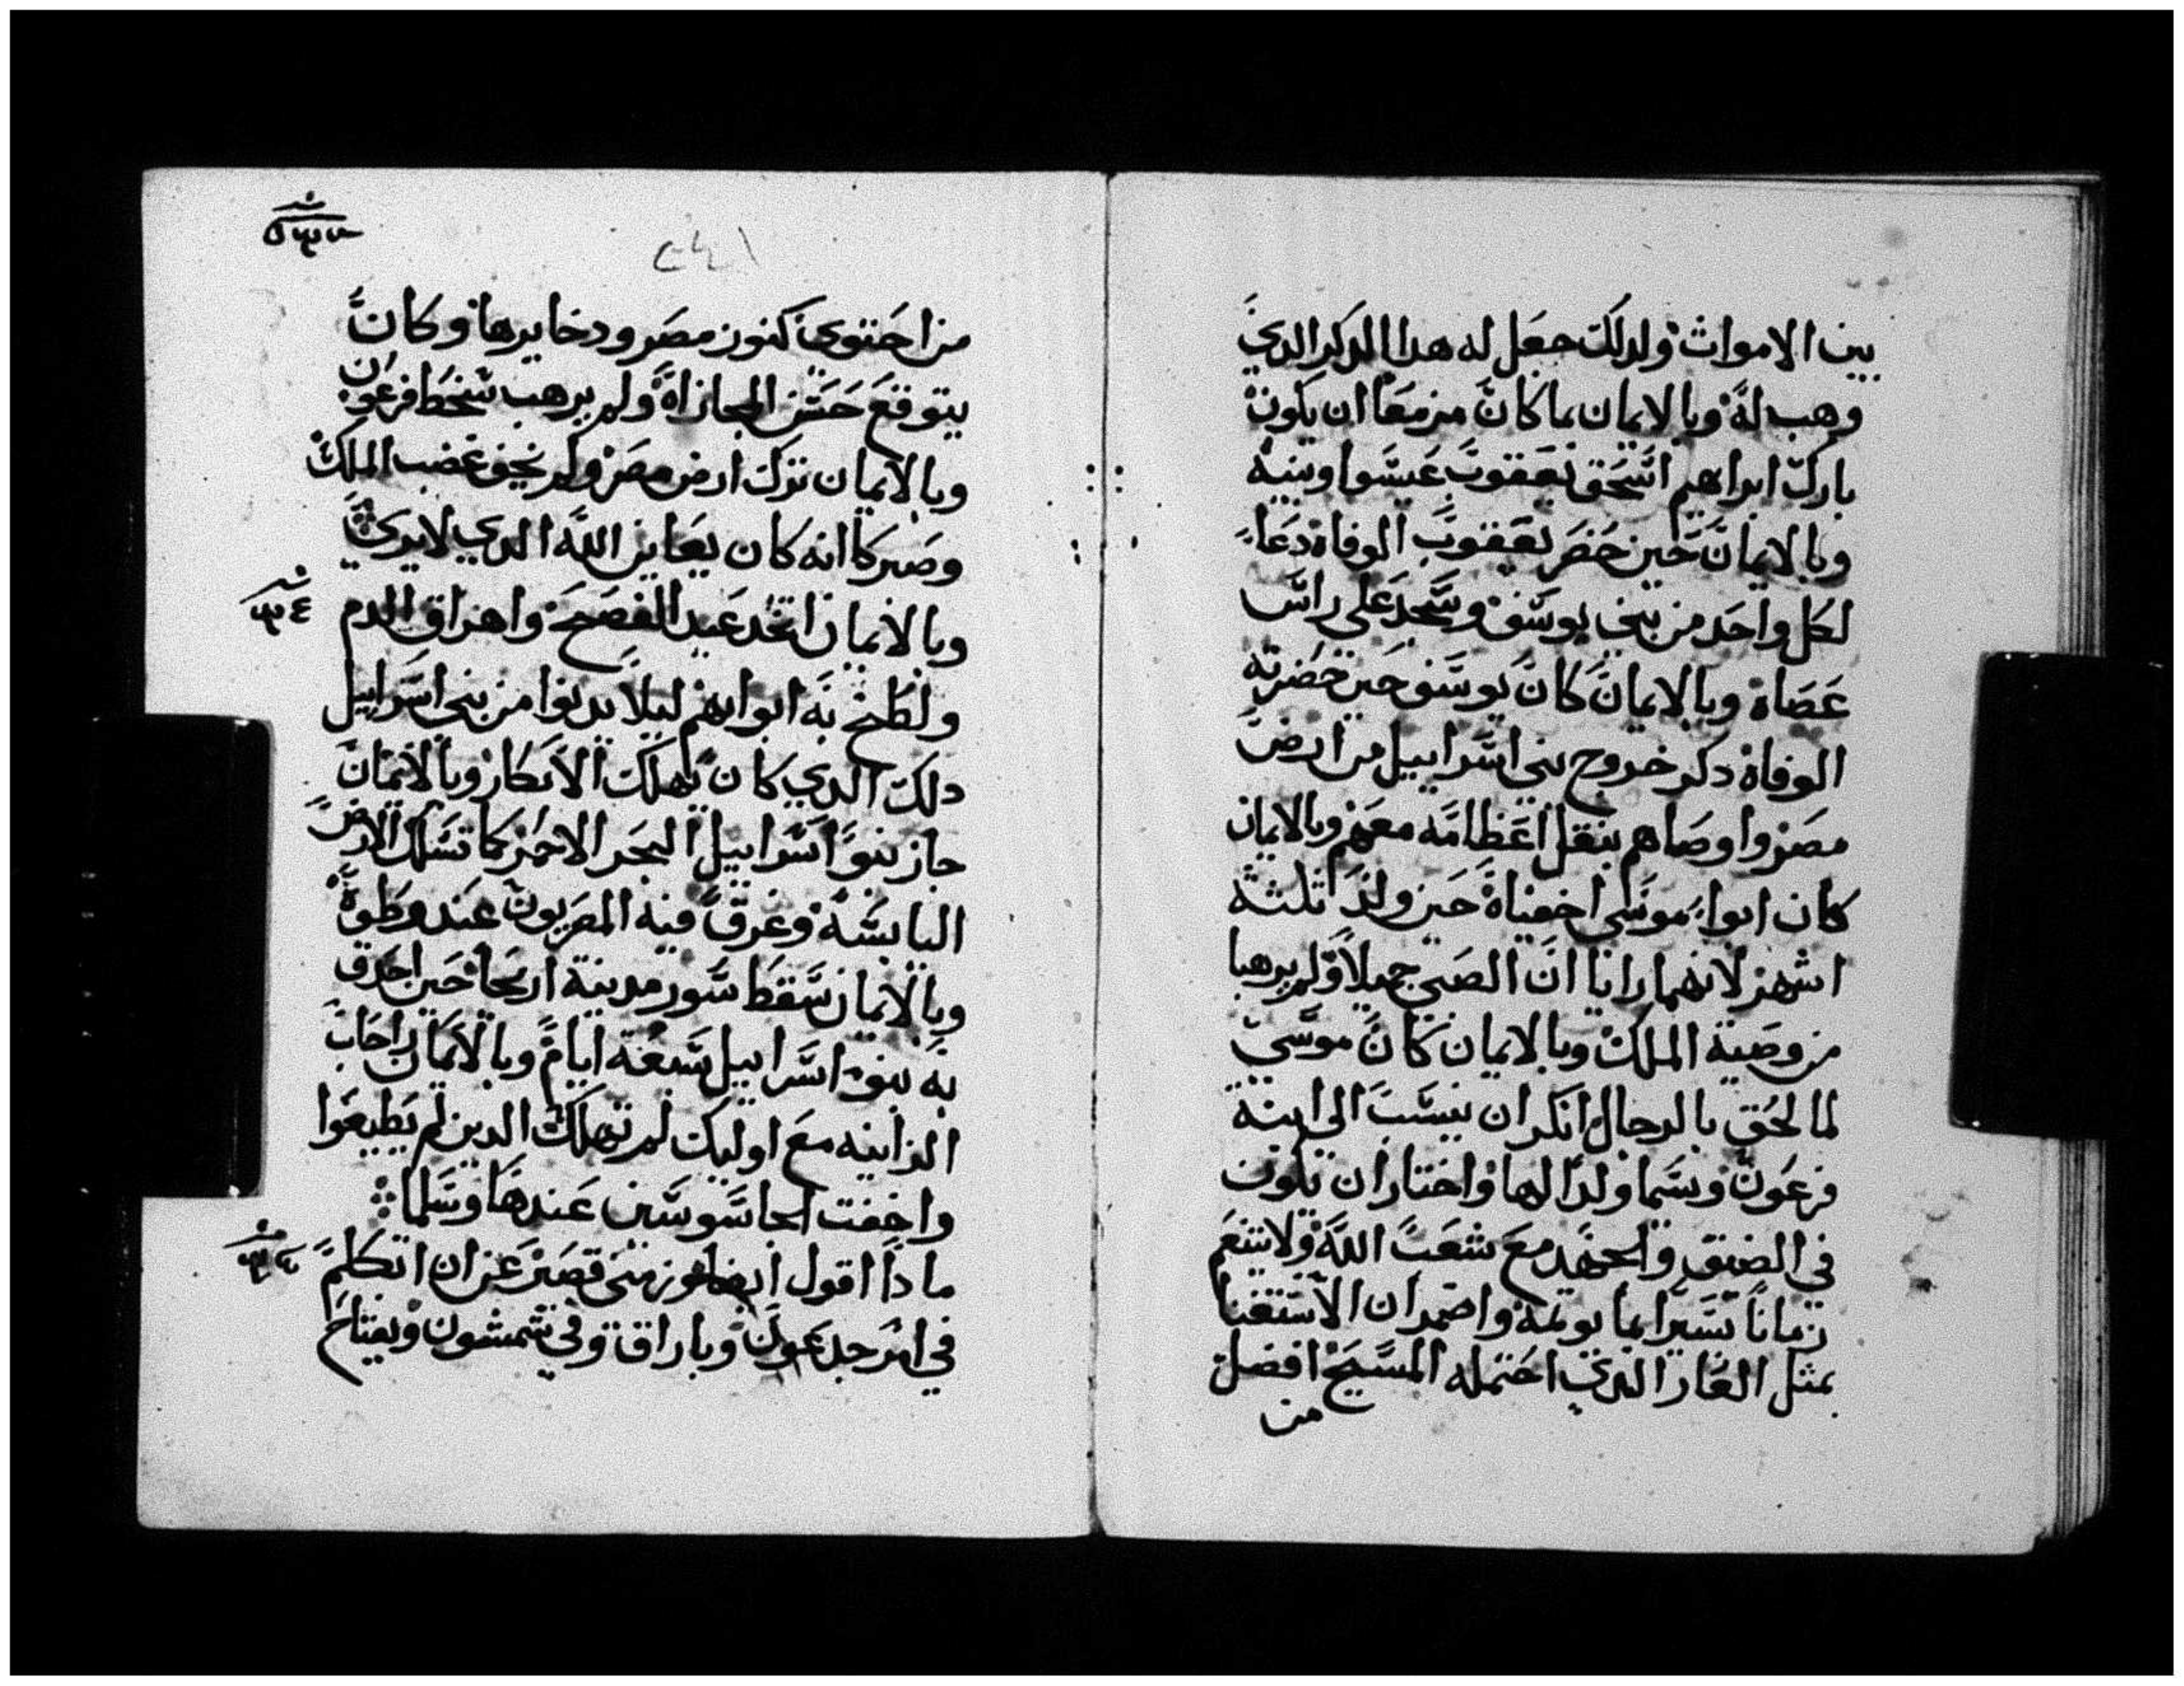 بين الاموات ولدلك جعل له هدا الدكر الدي
وهب له وبالايمان بما كان مزمعا ان يكون
بارك ابراهيم اسحق يعقوب عيسوا وبنيه
وبالايمان حين حضر يعقوب الوفاة دعا
لكل واحد من بني يوسف وسجد علي راس
عصاة وبالايمان كان يوسف حين حضرته
الوفاة دكر خروج بني اسراييل من ارض
مصر واوصاهم بنقل اعظامه معهم وبالايمان
كان ابوا موسي اخفياة حين ولد ثلثة
اشهر لانهما رايا ان الصبي جميلا ولم يرهبا
من وصية الملك وبالايمان كان موسي
لما لحق بالرجال انكر ان ينسب الي ابنة
فرعون وسما ولدا لها واختار ان يكون
في الضيق والجهد مع شعب الله ولا يتنعم
زمانا يسيرا بما يوثمه واضمر ان الاستغنا
بمثل العار الدي احتمله المسيح افضل
من
من احتوي كنوز مصر ودخايرها وكان
يتوقع حسن المجازاة ولم يرهب سخط فرعون
وبالايمان ترك ارض مصر ولم يخف غضب الملك
وصبر كاانه كان يعاين الله الدي لا يري
وبالايمان اتخد عيد الفصح واهراق الدم
ولطخ به ابوابهم ليلا يدنوا من بني اسراييل
دلك الدي كان يهلك الابكار وبالايمان
جاز بنو اسراييل البحر الاحمر كما تسلك الارض
اليابسة وغرق فيه المصريون عند وطوه
وبالايمان سقط سور مدينة اريحا حين احدق
به بنو اسراييل سبعة ايام وبالايمان راحاب
الزانيه مع اوليك لم تهلك الدين لم يطيعوا
واخفت الجاسوسين عندها وسلما
مادا اقول ايضا وزمني قصير عن ان اتكلم
في امر جدعون وباراق وفي شمشون ويفتاح